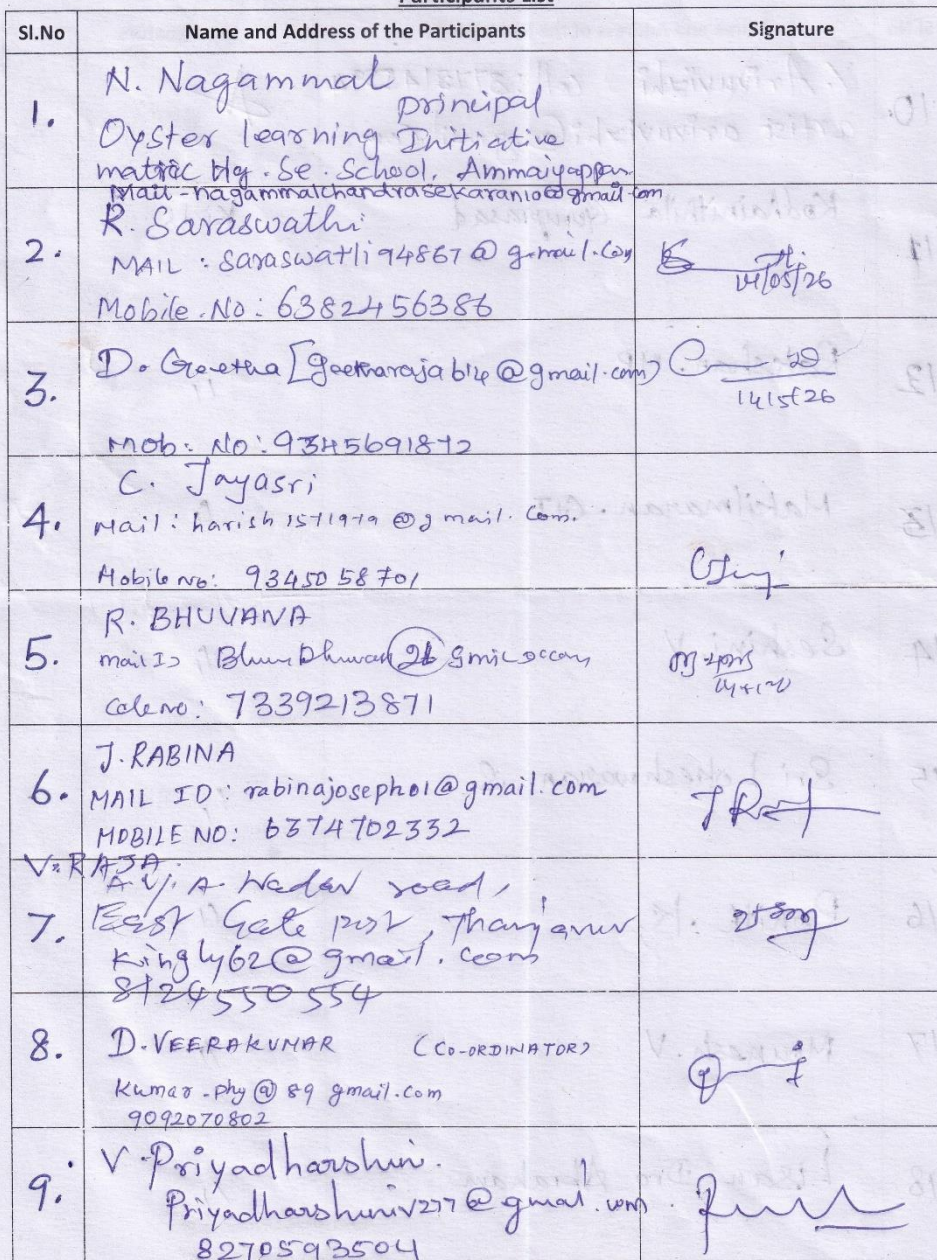 Participants List
Sl.No Name and Address of the Participants Signature
1. N. Nagammal
principal
Oyster learning Initiative
matric Hg. Se. School, Ammaiyappan
Mail-nagammalchandrasekaran10@gmail.com
2. R. Saraswathi
MAIL : saraswatli94867@gmail.com
14/05/26
Mobile.No: 6382456386
3. D. Geetha [geetharajab14@gmail.com)
14/5/26
Mob. No: 9345691872
4. C. Jayasri
Mail: harish1571979@gmail.com.
Mobile no: 9345058701
5. R. BHUVANA
mail ID
no: 7339213871
6. J. RABINA
MAIL ID: rabinajoseph01@gmail.com
MOBILE NO: 6374702332
V. RAJA
7. road,
East Gate post, Thanjavur
kingly62@gmail.com
8124550554
8. D. VEERAKUMAR (CO-ORDINATOR)
Kumar.phy@89 gmail.com
9092070802
9. V. Priyadharshini.
Priyadharshiniv277@gmail.com
8270593504